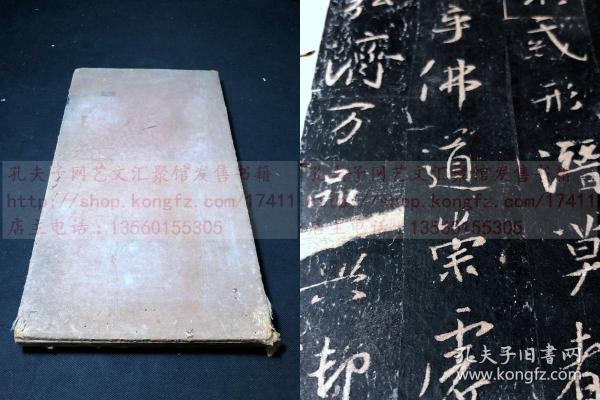 惑形潛莫
乎佛道崇虛
濟万品典御
孔夫子网艺文汇聚馆发售书籍
http://shop.kongfz.com/17411
店主电话：13560155305
孔夫子网艺文汇聚馆发售书籍
http://shop.kongfz.com/17411
店主电话：13560155305
孔夫子旧书网
www.kongfz.com